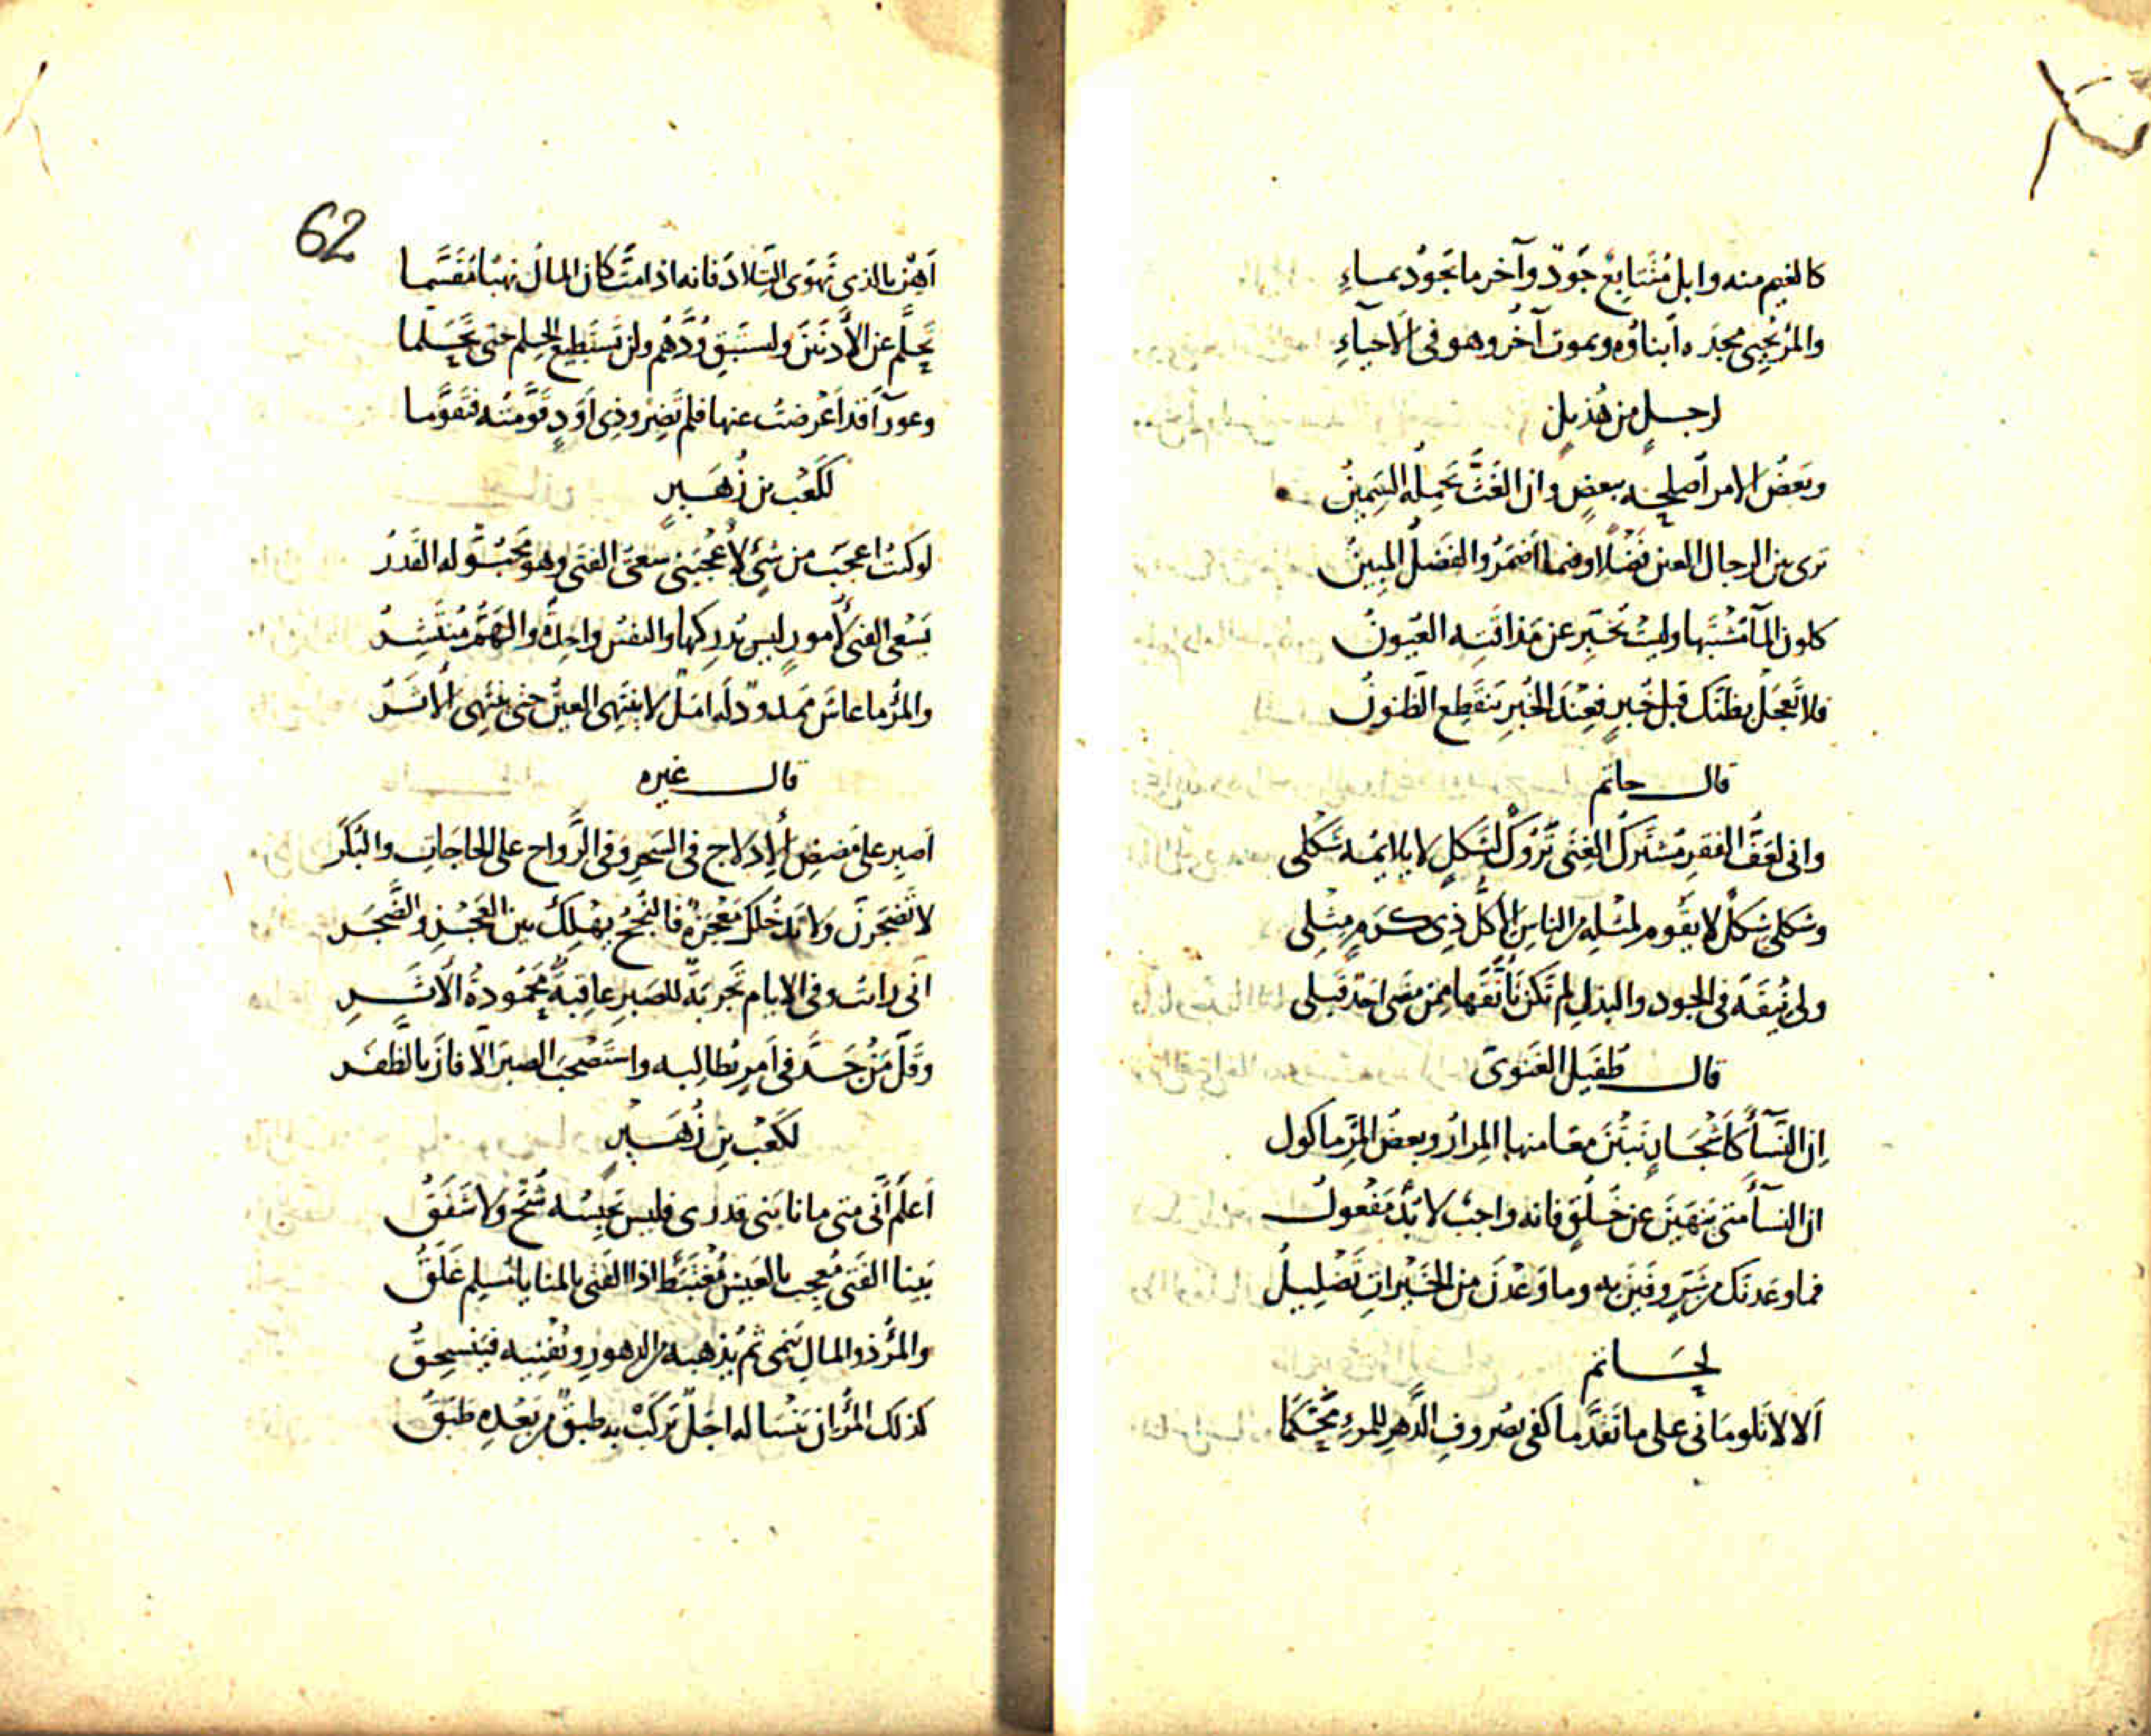 كالغيم منه وابل مُتَتَابِعٌ جَوْدٌ وآخر ما تَجُودُ بماءِ
والمرُ يُحيى مجدَه أبناؤه ويموت آخرُ وهو فى الاحياءِ
لرجلٍ من هُذيلٍ
وبَعضُ الامر أصلحه ببعضٍ وان الغَثَّ تَحمِلُه السَمِينُ
ترى بين الرجال العين فَضْلًا وفيما أضمَرُوا الفَضلُ المبينُ
كلون المآ مُشْتَبِها وليست تُخَبِّر عن مَذاقَتِه العُيونُ
فلا تَعجَل بظنّك قبل خُبرٍ فعِنْدَ الخُبرِ تنقَطِع الظنونُ
قال حاتم
وانى لعَفُّ الفقر مُشترَكُ الغِنَى تَرُوكٌ لشَكلٍ لا يلايمُه شَكلى
وشكلى شكلٌ لا يقُوم لمثلِه من الناسِ إلا كلُّ ذِى كَرَمٍ مِثلِى
ولى نِيقَةٌ فى الجود والبذلِ لم تكن تأنَّقَها ممن مضى احدٌ قَبلى
قال طفَيل الغَنَوىّ
اِن النّسآَ كاشجارٍ نَبَتْنَ معًا منها المِرارُ وبعضُ المُرّ ماكول
ان النسآَ متى يُنْهَيْنَ عن خُلُقٍ فانه واجبٌ لا بُدَّ مَفْعولُ
فما وعَدنَك من شَرٍّ وفَيْنَ به وما وَعَدْنَ من الخَيْراتِ تَضْلِيلُ
لحَاتم
ألا لا تَلومَانى على ما تَقَدَّما كفى بصُروفِ الدَّهرِ للمرءِ مُحْكِمَا
62
أَهِنْ بالذى تَهوَى التِّلادَ فانه اذا متَّ كان المالُ نهبًا مُقَسَّما
تَحَلَّم عن الأَدنَيْنَ واستَبقِ وُدَّهُم ولن تستَطِيعَ الحِلم حتى تَحَلَّما
وعورآَ قد أعْرضتُ عنها فلم تَضِرْ وذِى أَوَدٍ قَوَّمتُه فتَقَوَّما
لكَعْب بن زُهَيرٍ
لو كنتُ اعجَبَ من شَىٍٔ لأَعْجَبَنى سَعْىُ الفتى وهو مَخْبُوٌّ له القدَرُ
يَسْعى الفتى لأمورٍ ليس يُدرِكها والنفسُ واحِدَةٌ والهَمُّ مُنتَشِرُ
والمرُٔ ما عاش ممدودٌ له امَلٌ لا ينتهى العينُ حتى ينتَهِى الأثَرُ
قال غيره
أصبر على مَضَضِ الإدلاجِ فى السَحرِ وفى الرَّواح على الحاجَاتِ والبُكَرِ
لا تَضجَرَنَّ ولا يَدخُلكَ مَعْجَزةٌ فالنُجحُ يهلِكُ بين العَجْزِ والضَّجَرِ
انّى رايت وفى الايام تَجربَةٌ للصَبرِ عاقِبةً مَحْمُودةَ الأثَرِ
وقَلَّ مَنْ جَدَّ فى أمرٍ يُطالِبه واستَصْحَبَ الصبرَ الّا فازَ بالظَفَرِ
لكَعْب بن زُهَيرٍ
أعلَمُ أنّى متى ما تاتِنى قدرى فليس يَحبِسُه شُحٌّ ولا شَفَقُ
بَينا الفَتى مُعجِبٌ بالعَيشِ مُغْتَبِطٌ اذا الفَتى بالمنايا مُسْلِم غَلَقُ
والمرُٔ ذو المالِ يَنمى ثم يُذهِبه مَر الدهورِ ويُفْنِيه فيَنْسَحِقُ
كذلك المرُٔ ان يَنْسَا له اجَلٌ تَركَبْ به طَبقٌ من بَعْدِهِ طَبَقُ